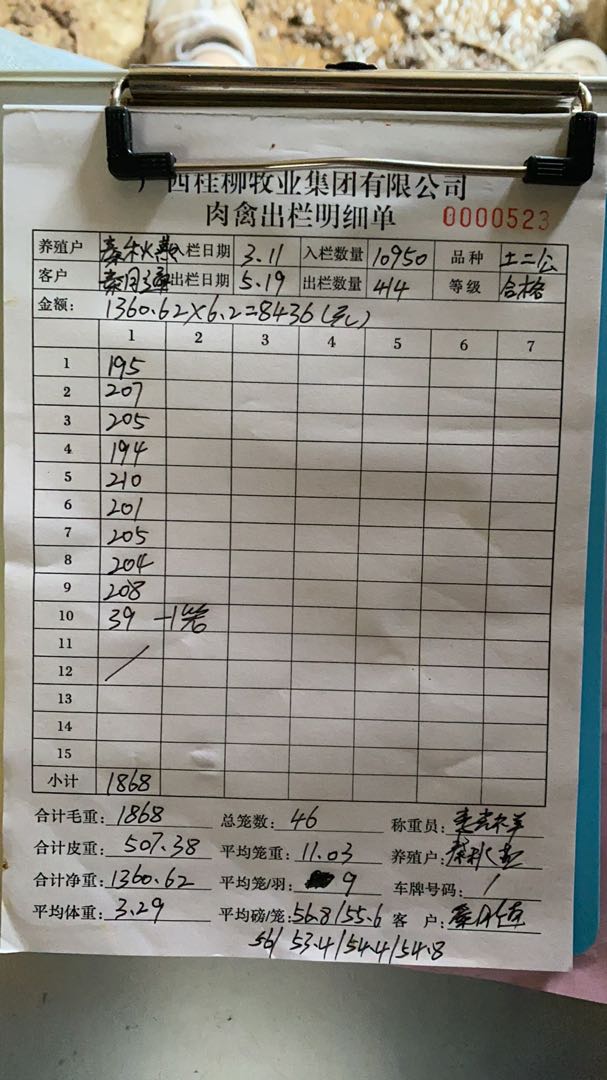 广西桂柳牧业集团有限公司
肉禽出栏明细单 0000523
养殖户 入栏日期 3.11 入栏数量 10950 品种 土二公
客户 出栏日期 5.19 出栏数量 414 等级 合格
金额: 1360.62×6.2=8436(元)
1 2 3 4 5 6 7
1 195
2 207
3 205
4 194
5 210
6 201
7 205
8 204
9 208
10 39 -1笼
11
12
13
14
15
小计 1868
合计毛重: 1868 总笼数: 46 称重员:
合计皮重: 507.38 平均笼重: 11.03 养殖户:
合计净重: 1360.62 平均笼/羽: 9 车牌号码: /
平均体重: 3.29 平均磅/笼: 56.8/55.6 客户:
56/53.4/54.4/54.8